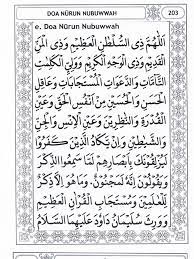 DOA NŪRUN NUBUWWAH
203
e. Doa Nūrun Nubuwwah
اَللّٰهُمَّ ذِى السُّلْطٰنِ الْعَظِيْمِ وَذِى الْمَنِّ
الْقَدِيْمِ وَذِى الْوَجْهِ الْكَرِيْمِ وَوَلِيِّ الْكَلِمٰتِ
التَّامَّاتِ وَالدَّعَوَاتِ الْمُسْتَجَابَاتِ وَعَاقِلِ
الْحَسَنِ وَالْحُسَيْنِ مِنْ اَنْفُسِ الْحَقِّ عَيْنِ
الْقُدْرَةِ وَالنَّاظِرِيْنَ وَعَيْنِ الْاِنْسِ وَالْجِنِّ
وَالشَّيٰطِيْنِ وَاِنْ يَّكَادُ الَّذِيْنَ كَفَرُوْا
لَيُزْلِقُوْنَكَ بِاَبْصَارِهِمْ لَمَّا سَمِعُوا الذِّكْرَ
وَيَقُوْلُوْنَ اِنَّهٗ لَمَجْنُوْنٌ، وَمَا هُوَ اِلَّا ذِكْرٌ
لِّلْعٰلَمِيْنَ وَمُسْتَجَابِ الْقُرْاٰنِ الْعَظِيْمِ
وَوَرِثَ سُلَيْمَانُ دَاوٗدَ عَلَيْهِمَا السَّلَامُ